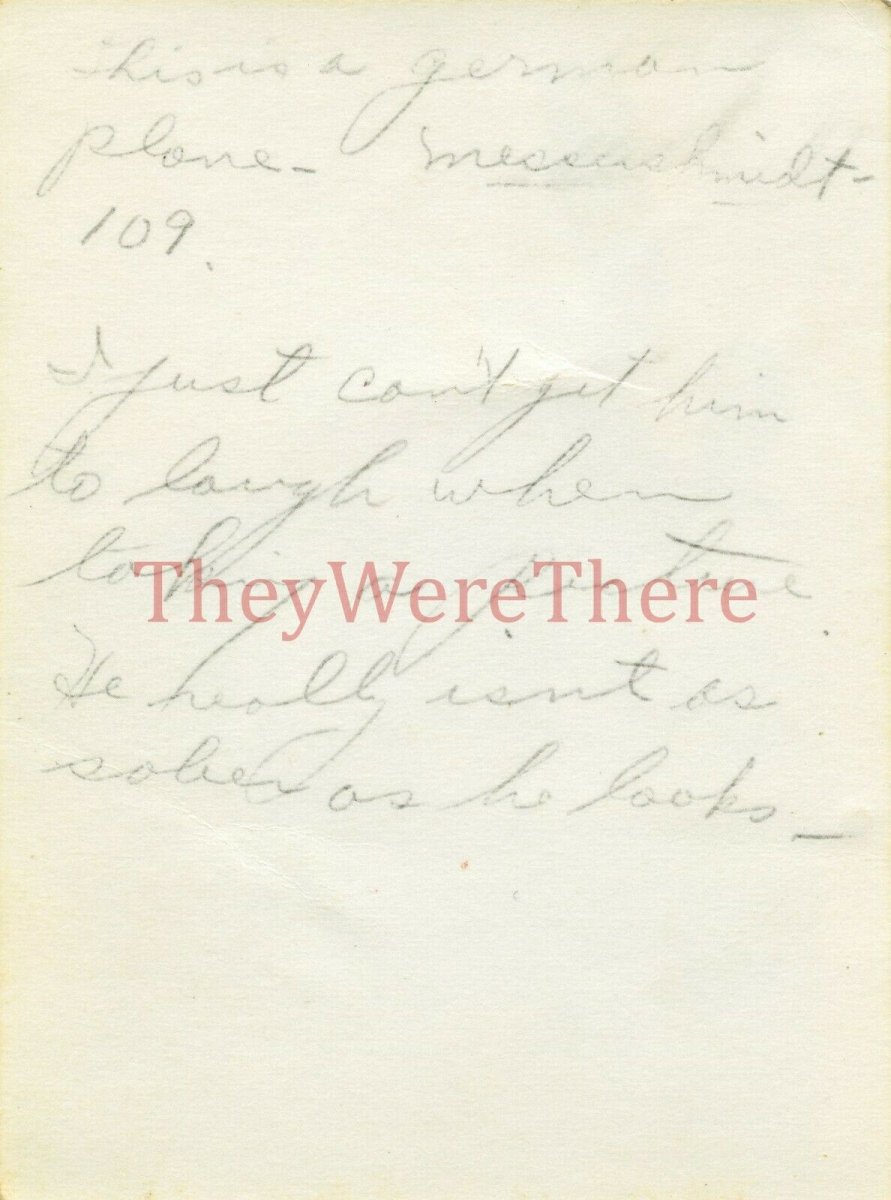 This is a german
plane - Messershmidt -
109.
I just can't get him
to laugh when
taking a picture.
TheyWereThere
He really isnt as
sober as he looks -